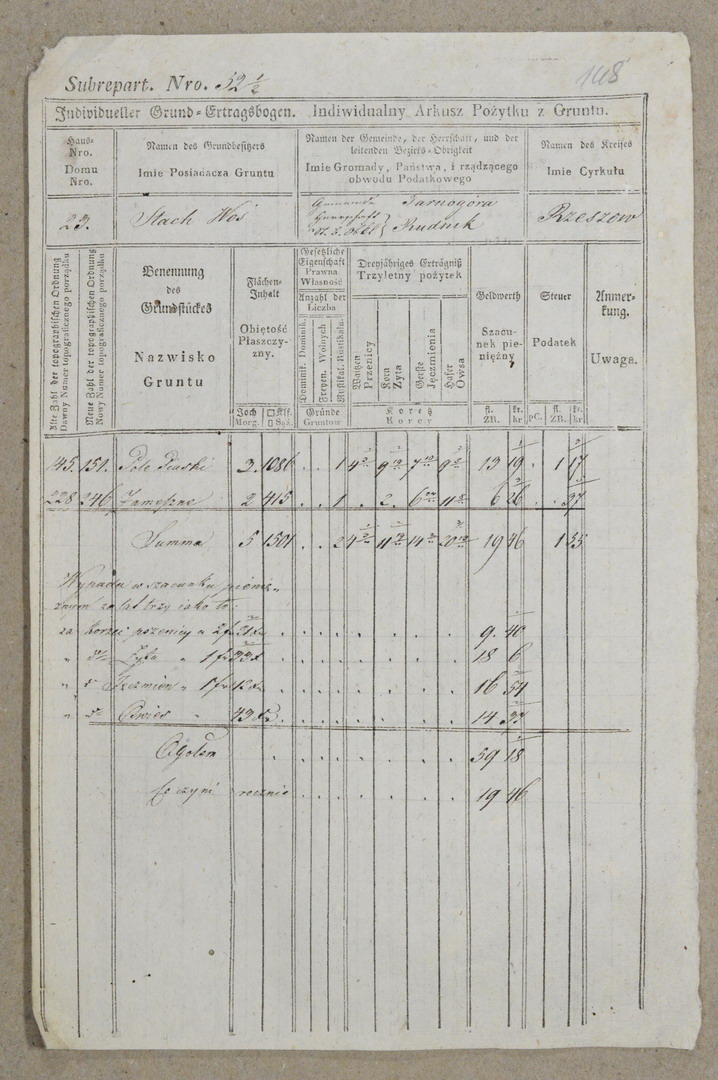 Subrepart. Nro. 52 ½
148
Individueller Grund-Ertragsbogen. Indiwidualny Arkusz Pożytku z Gruntu.
Haus-Nro. Domu Nro.
Namen des Grundbesitzers
Imie Posiadacza Gruntu
Namen der Gemeinde, der Herrschaft, und der leitenden Bezirks-Obrigkeit
Imie Gromady, Państwa, i rządzącego obwodu Podatkowego
Namen des Kreises
Imie Cyrkułu
23. Stach Woś
Gemeinde Tarnogóra
Herrschaft
Rudnik
Rzeszow
Alte Zahl der topographischen Ordnung
Dawny Numer topograficznego porządku
Neue Zahl der topographischen Ordnung
Nowy Numer topograficznego porządku
Benennung des Grundstückes
Nazwisko Gruntu
Flächen-Inhalt
Obiętość Płaszczyzny.
Joch Morg.
Gesetzliche Eigenschaft
Prawna Własność
Anzahl der
Liczba
Dominik. Dominik.
Freyen. Wolnych
Rustikal. Rustikaln.
Gründe
Gruntow
Dreyjähriges Erträgniß
Trzyletny pożytek
Waitzen Przenicy
Korn Zyta
Gerste Jęczmienia
Hafer Owsa
Koretz
Korcy
Geldwerth
Szacunek pieniężny
fl. ZR. kr. kr
Steuer
Podatek
pC. fl. ZR. kr. kr.
Anmerkung.
Uwaga.
145. 151. Pole Piaski 3. 1086 . . 1 13 19 . 1 17
228 246 2 415 . . 1 . 2. 6 26 . . 37
Summa 5 1501 . . 2 19 46 1 55
Wypada w szacunku pienię-
żnym za lat trzy iako to:
za korzec pszenicy a 2 f 9. 40
" Zyta " 1 f 18 6
" Jęczmien " 1 f 16 54
" Owies " 43 14 37
Ogołem 59 18
Co czyni rocznie 19 46